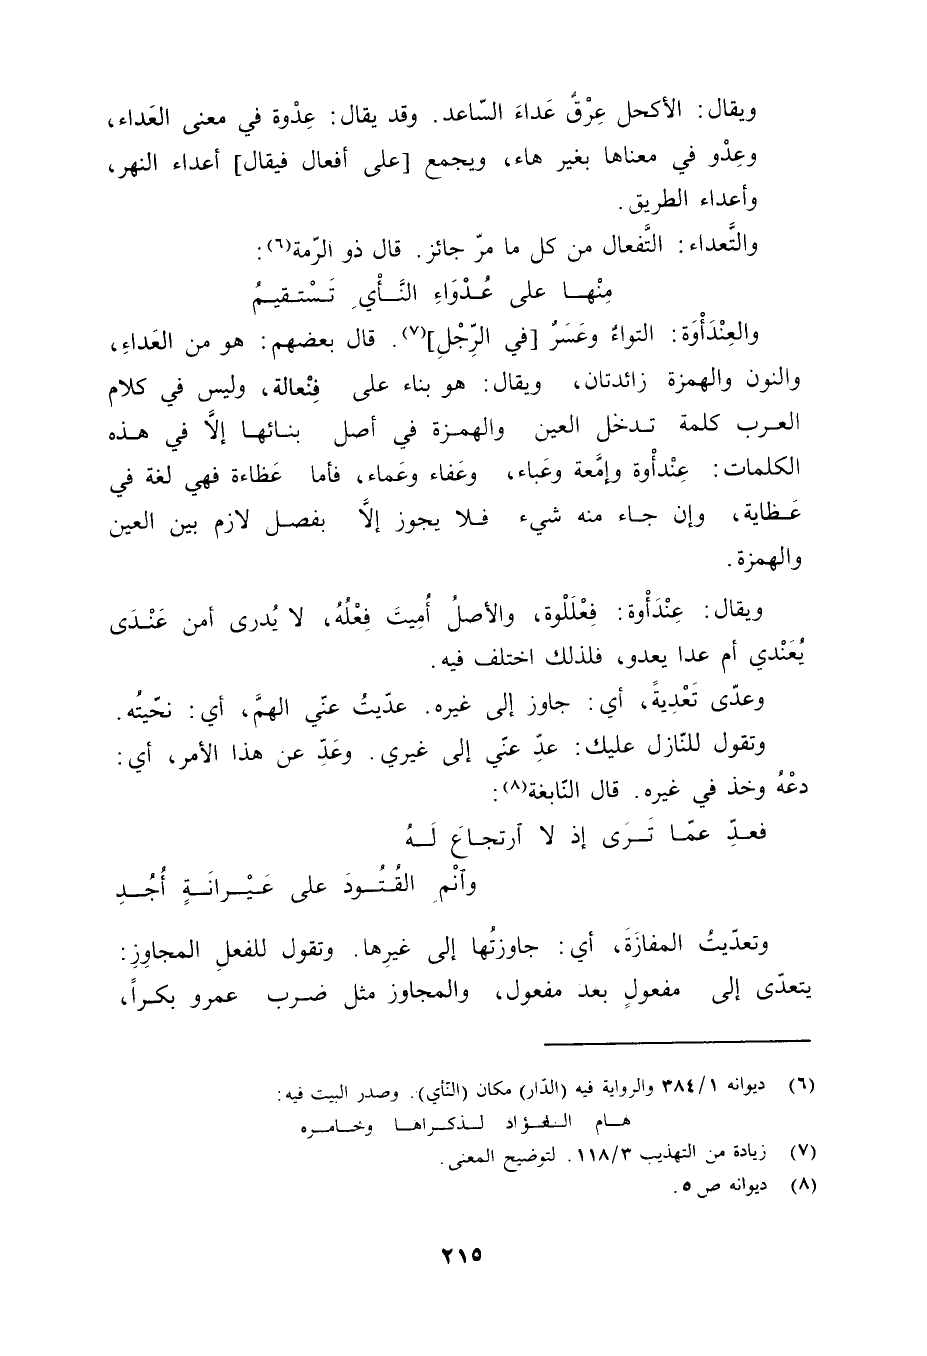 ويقال: الأكحل عِرْقٌ عَداءَ السّاعد. وقد يقال: عِدْوة في معنى العَداء،
وعِدْو في معناها بغير هاء، ويجمع [على أفعال فيقال] أعداء النهر،
وأعداء الطريق.
والتَّعداء: التَّفعال من كل ما مرّ جائز. قال ذو الرّمة(٦):
مِنْهـا على عُـدْوَاءِ النَّـأْيِ تَسْتَـقيـمُ
والعِنْدَأْوَة: التواءٌ وعَسَرٌ [في الرِّجْلِ](٧). قال بعضهم: هو من العَداءِ،
والنون والهمزة زائدتان، ويقال: هو بناء على فِنْعالة، وليس في كلام
العـرب كلمة تـدخل العين والهمـزة في أصل بنـائهـا إلاَّ في هـذه
الكلمات: عِنْدأْوة وإمَّعة وعَباء، وعَفاء وعَماء، فأما عَظاءة فهي لغة في
عَـظاية، وإن جـاء منه شيء فـلا يجوز إلاَّ بفصـل لازم بين العين
والهمزة.
ويقال: عِنْدَأْوة: فِعْلَلْوة، والأصلُ أُمِيتَ فِعْلُهُ، لا يُدرى أمن عَنْـدَى
يُعَنْدي أم عدا يعدو، فلذلك اختلف فيه.
وعدّى تَعْدِيةً، أي: جاوز إلى غيره. عدّيتُ عنّي الهمَّ، أي: نحّيتُه.
وتقول للنّازل عليك: عدِّ عنّي إلى غيري. وعَدِّ عن هذا الأمر، أي:
دعْهُ وخذ في غيره. قال النّابغة(٨):
فعـدِّ عمّـا تَـرَى إذ لا ٱرتجـاعَ لَـهُ
وٱنْمِ القُتُـودَ على عَيْـرانَـةٍ أُجُـدِ
وتعدّيتُ المفازَةَ، أي: جاوزتُها إلى غيرِها. وتقول للفعلِ المجاوِزِ:
يتعدّى إلى مفعولٍ بعد مفعول، والمجاوز مثل ضـرب عمرو بكـراً،
(٦) ديوانه ٣٨٤/١ والرواية فيه (الدّار) مكان (النّأي). وصدر البيت فيه:
هـام الـفـؤاد لـذكـراهـا وخـامـره
(٧) زيادة من التهذيب ١١٨/٣. لتوضيح المعنى.
(٨) ديوانه ص ٥.
٢١٥